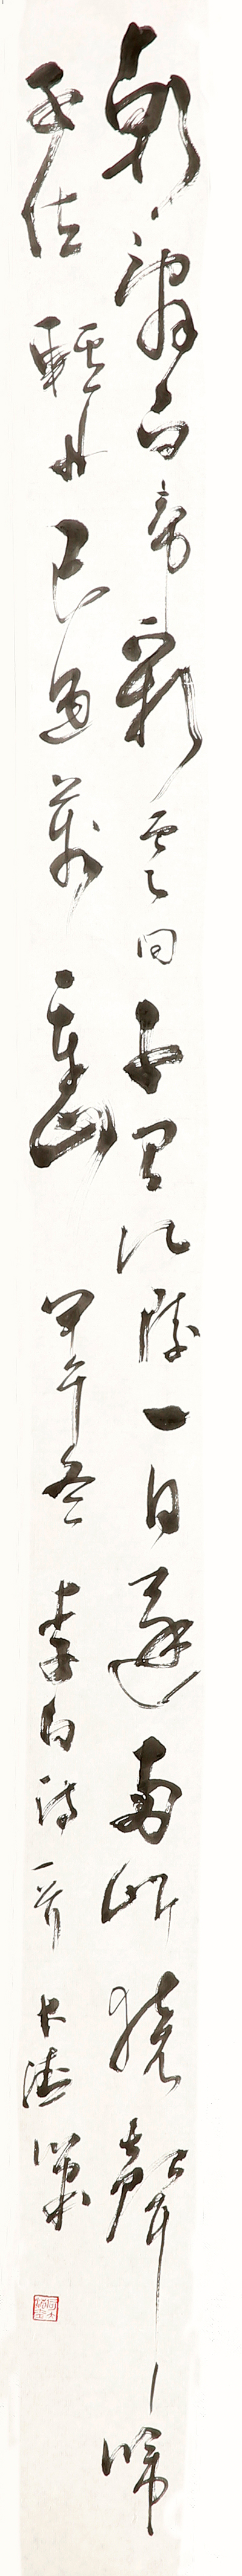 朝辭白帝彩雲間千里江陵一日還兩岸猿聲啼
不住輕舟已過萬重山 甲午冬 李白詩一首